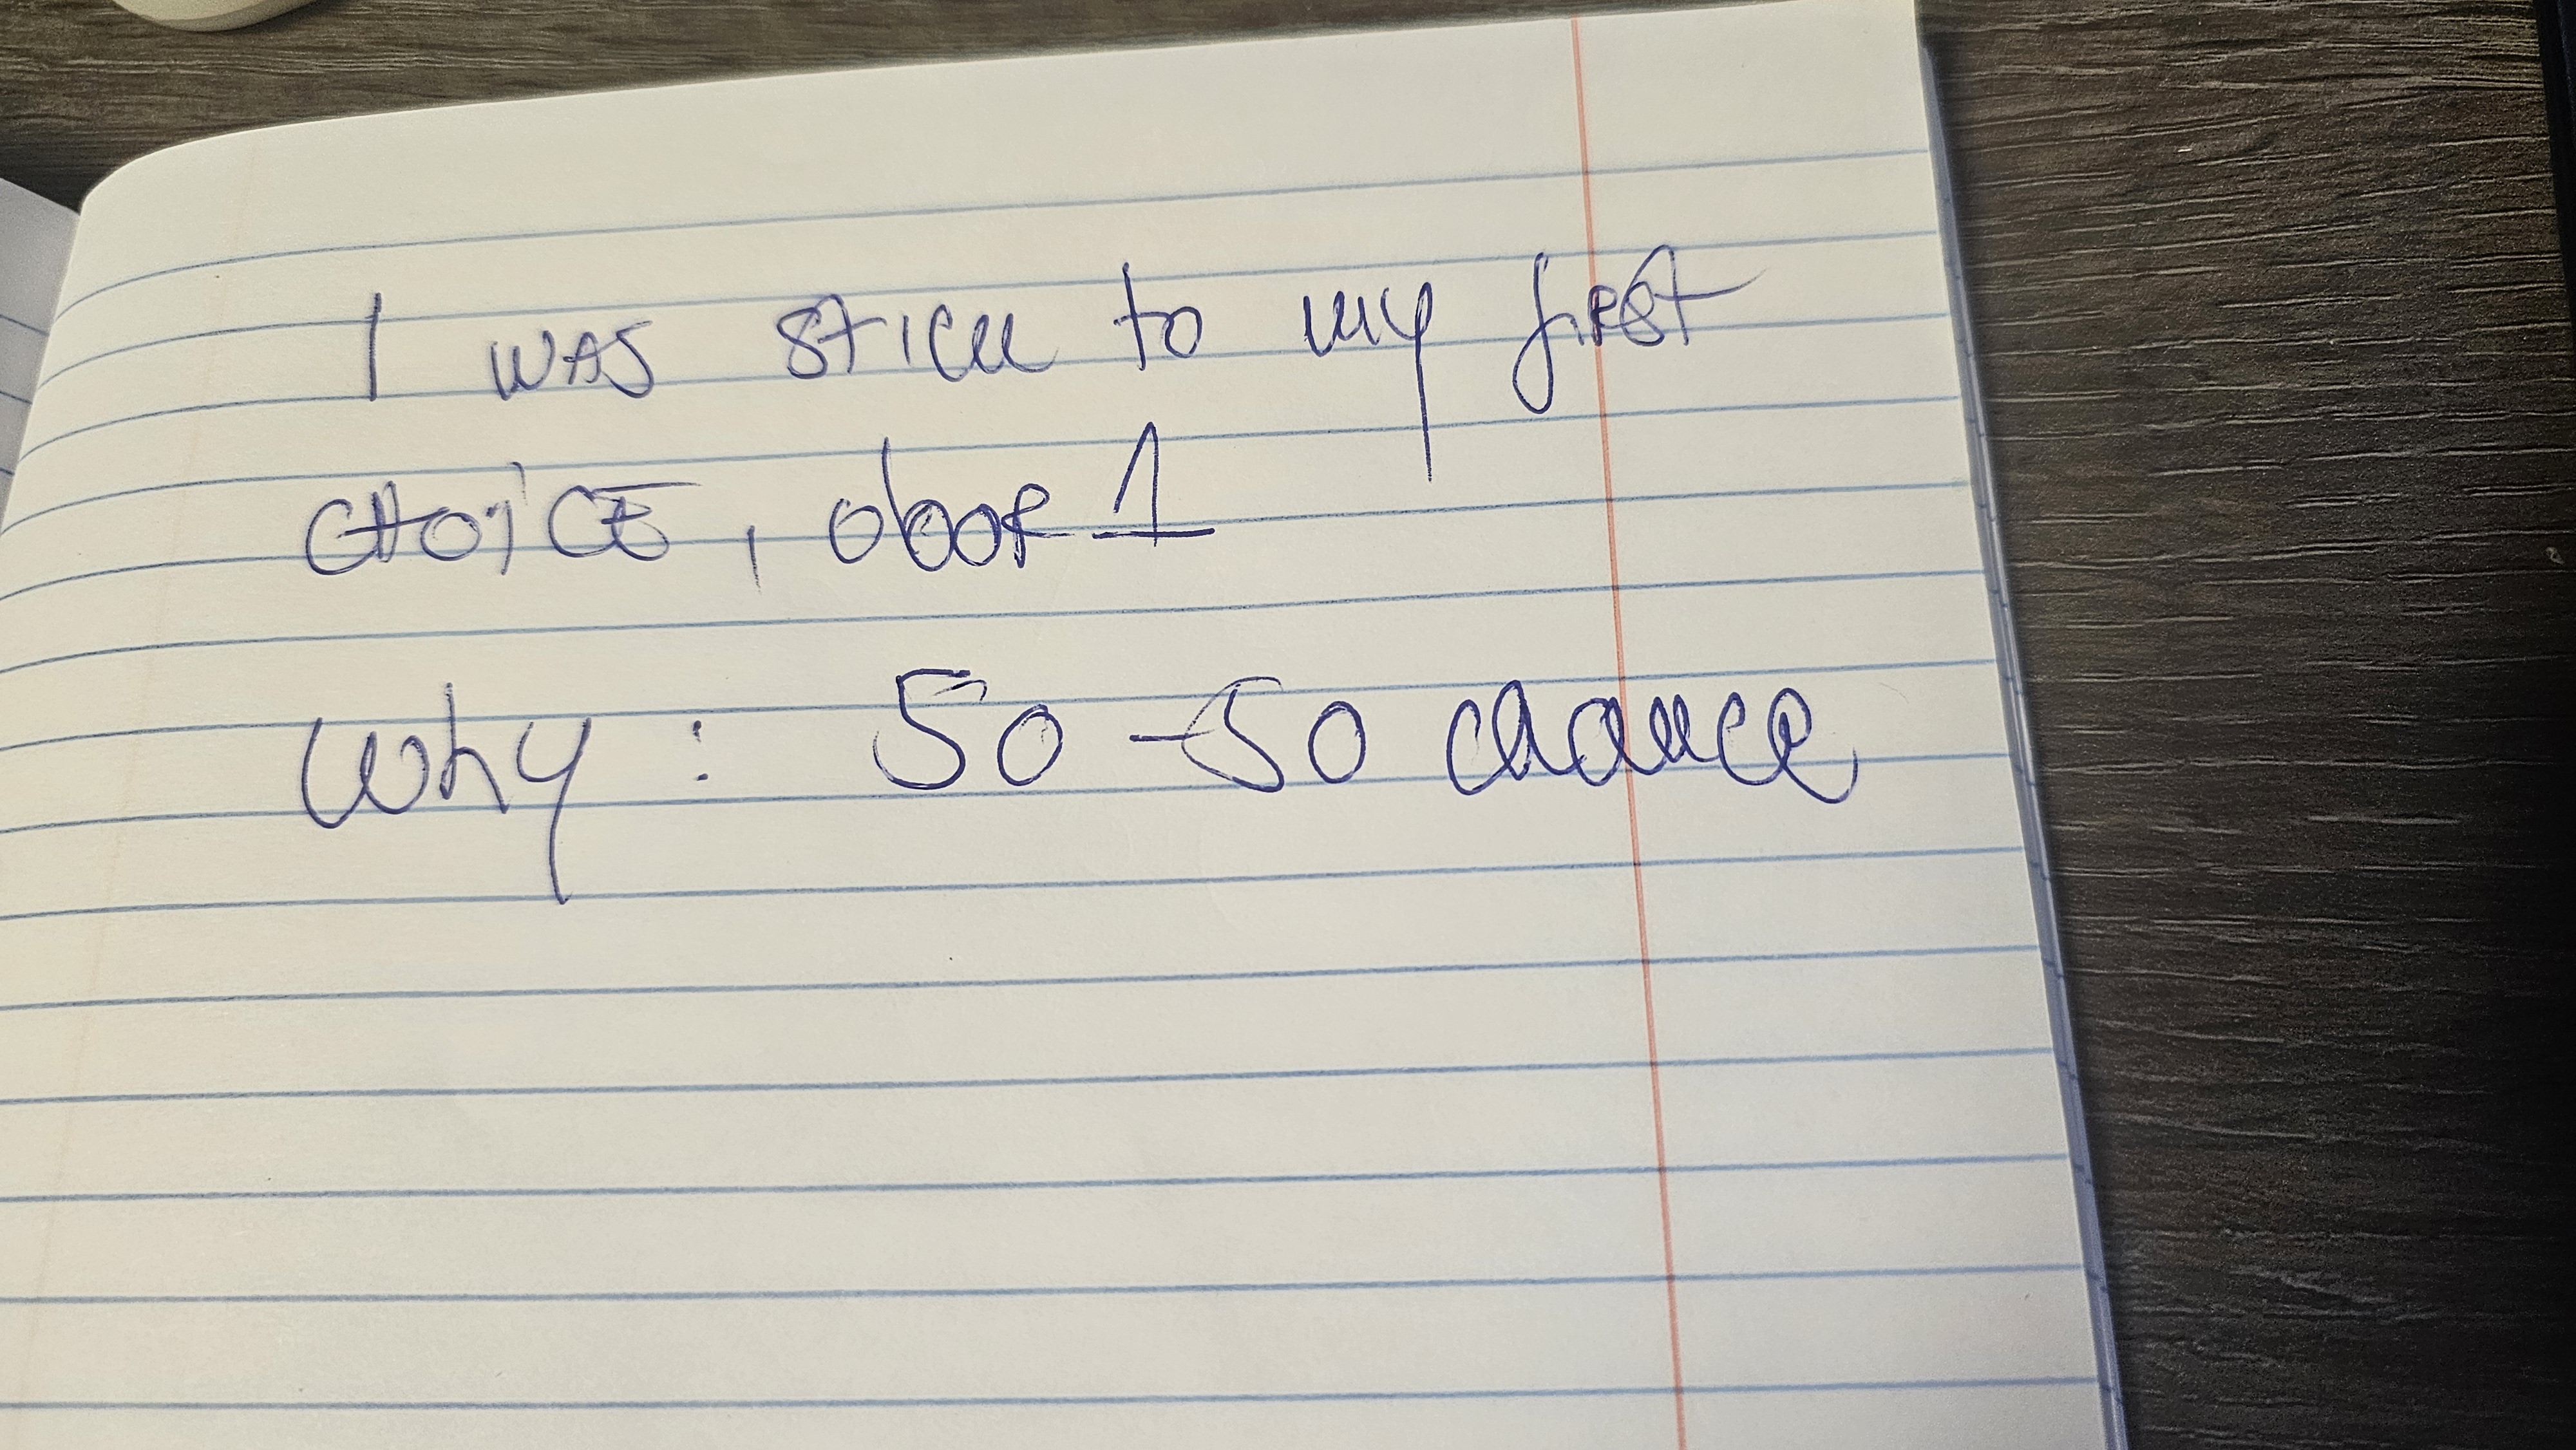 I was stick to my first
choice, door 1
Why: 50-50 chance